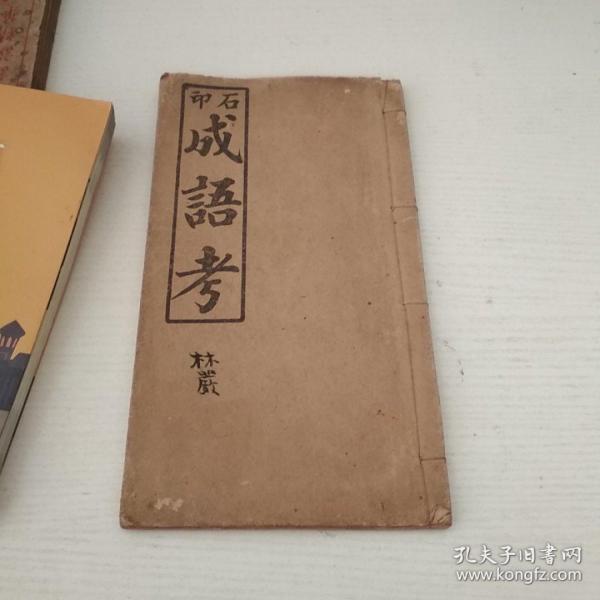 石印
成語考
林巖
孔夫子旧书网
www.kongfz.com